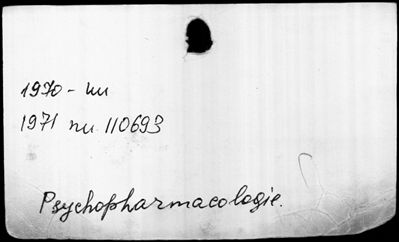 1970 - nu
1971 nu 110693
Psychopharmacologie.